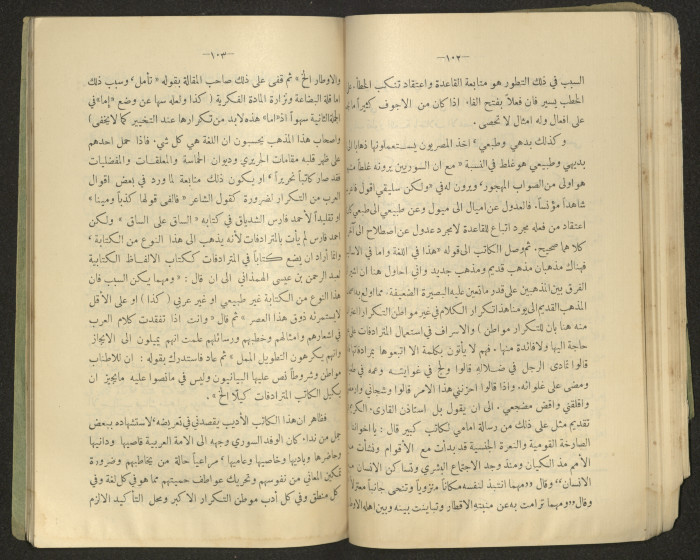 —١٠٢—
السبب في ذلك التطور هو متابعة القاعدة واعتقاد تنكب الخطأ. على
الخطب يسير فان فعلاً بفتح الفاء اذا كان من الاجوف كثيراً ما
على افعال وله امثال لا تحصى.
وكذلك بدهي وطبعي ' اخذ المصريون يستعملونها ذهاباً الى
بديهي وطبيعي هو غلط في النسبة « مع ان السوريين يرونه غلطاً
هو اولى من الصواب المهجور ' ويرون له في « ولكن سليقي اقول
شاهداً مؤنساً. فالعدول عن اميال الى ميول وعن طبيعي الى طبعي
اعتقاد من فعله مجرد اتباع للقاعدة لا مجرد عدول عن اصطلاح الى
كلاهما صحيح. ثم وصل الكاتب الى قوله «هذا في اللغة واما في
فهناك مذهبان مذهب قديم ومذهب جديد واني احاول هنا ان
الفرق بين المذهبين على قدر ما تعين عليه البصيرة الضعيفة. فما
المذهب القديم الى يومنا هذا تكرار الكلام في غير مواطن التكرار
منه هنا بان للتكرار مواطن ) والاسراف في استعمال المترادفات
حاجة اليها ولا فائدة منها. فهم لا يأتون بكلمة الا اتبعوها بمرادفاتها
قالوا تمادى الرجل في ضلاله قالوا ولج في غوايته وعمه في
ومضى على غلوائه. واذا قالوا احزنني هذا الامر قالوا وشجاني
واقلقني واقض مضجعي. الى ان يقول بل استاذن القارئ.
تقديم مثل على ذلك من رسالة امامي لكاتب كبير قال : يا اخواننا
الصارخة القومية والنعرة الجنسية قد بدأت مع الأقوام ونشأت
الأمر مذ الكيان ومنذ وجد الاجتماع البشري وتساكن الانسان
الانسان” وقال «ومهما انتبذ لنفسه مكاناً منزوياً وتنحى جانباً
وقال «ومهما ترامت به عن منبته الاقطار وتباينت بينه وبين اهله
—١٠٣—
والاوطار الخ » ثم قفى على ذلك صاحب المقالة بقوله « تأمل ' وسبب ذلك
اما قلة البضاعة ونزارة المادة الفكرية ( كذا ولعله سها عن وضع «إما» في
الجملة الثانية سهواً اذ «اما» هذه لابد من تكرارها عند التخيير كما لا يخفى)
واصحاب هذا المذهب يحسبون ان اللغة هي كل شيء. فاذا حمل احدهم
على ظهر قلبه مقامات الحريري وديوان الحماسة والمعلقات والمفضليات
فقد صار كاتباً نحريراً ' او يكون ذلك متابعة لما ورد في بعض اقوال
العرب من التكرار لضرورة كقول الشاعر « فالفى قولها كذباً ومينا»
او تقليداً لأحمد فارس الشدياق في كتابه « الساق على الساق » ولكن
احمد فارس لم يأت بالمترادفات لأنه يذهب الى هذا النوع من الكتابة '
وانما أراد ان يضع كتاباً في المترادفات ككتاب الالفاظ الكتابية
لعبد الرحمن بن عيسى الهمذاني الى ان قال : «ومهما يكن السبب فان
هذا النوع من الكتابة غير طبيعي او غير عربي ( كذا ) او على الاقل
لا يستمرئه ذوق هذا العصر » ثم قال « وانت اذا تفقدت كلام العرب
في اشعارهم وامثالهم وخطبهم ورسائلهم علمت انهم يميلون الى الايجاز
وانهم يكرهون التطويل الممل » ثم عاد فاستدرك بقوله : ان للاطناب
مواطن وشروطاً نص عليها البيانيون وليس في ما نصوا عليه ما يجيز ان
يكيل الكاتب المترادفات كيلاً الخ ».
فظاهر ان هذا الكاتب الأديب يقصدني في تعريضه ' لاستشهاده ببعض
جمل من نداء كان الوفد السوري وجهه الى الامة العربية قاصيها ودانيها
وحاضرها وباديها وخاصيها وعاميها ' مراعياً حالة من يخاطبهم وضرورة
تمكين المعاني من نفوسهم وتحريك عواطف حميتهم مما هو في كل لغة وفي
كل منطق وفي كل أدب موطن التكرار الاكبر ومحل التأكيد الالزم